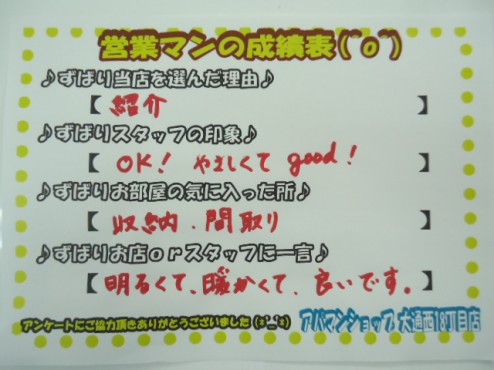 営業マンの成績表(^o^)
♪ずばり当店を選んだ理由♪
【 紹介 】
♪ずばりスタッフの印象♪
【 OK! やさしくて good! 】
♪ずばりお部屋の気に入った所♪
【 収納、間取り 】
♪ずばりお店orスタッフに一言♪
【 明るくて、暖かくて、良いです。 】
アンケートにご協力頂きありがとうございました(*^_^*) アパマンショップ 大通西18丁目店